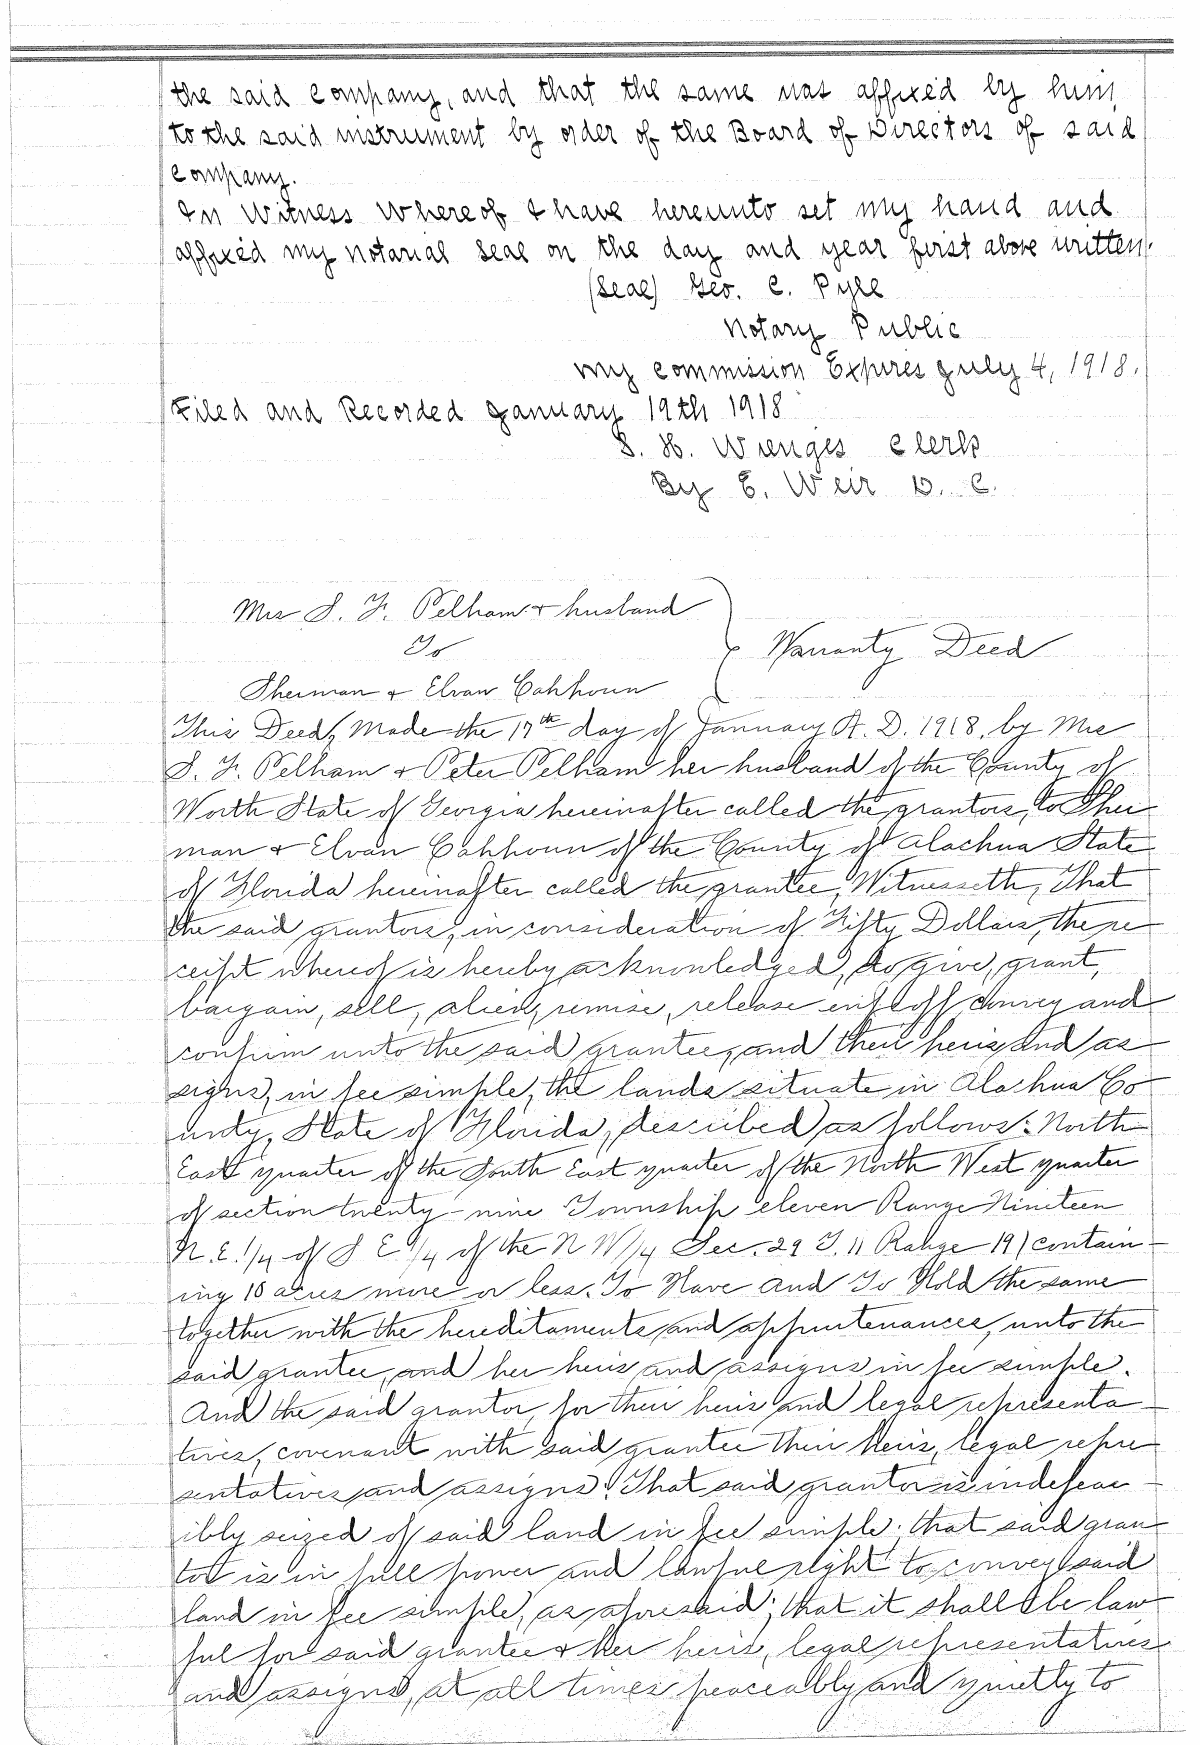 the said company, and that the same was affixed by him
to the said instrument by order of the Board of Directors of said
company.
In Witness Whereof I have hereunto set my hand and
affixed my notarial seal on the day and year first above written.
(Seal) Geo. C. Pyle
Notary Public
My commission Expires July 4, 1918.
Filed and Recorded January 19th 1918
S. H. Wienges Clerk
By E. Weir D. C.
Mrs S. F. Pelham & husband
To
Warranty Deed
Sherman & Elvan Cahhoun
This Deed, Made the 17th day of January A. D. 1918, by Mrs
S. F. Pelham & Peter Pelham her husband of the County of
Worth State of Georgia hereinafter called the grantors, to Sher
man & Elvan Cahhoun of the County of Alachua State
of Florida hereinafter called the grantee, Witnesseth, That
the said grantors, in consideration of Fifty Dollars, the re
ceipt whereof is hereby acknowledged, do give, grant,
bargain, sell, alien, remise, release enfeoff convey and
confirm unto the said grantee, and their heirs and as
signs, in fee simple, the lands situate in Alachua Co
unty, State of Florida, described as follows: North
East quarter of the South East quarter of the North West quarter
of section twenty-nine Township eleven Range Nineteen
N.E. 1/4 of S E 1/4 of the N W 1/4 Sec. 29 T. 11 Range 19) contain-
ing 10 acres more or less. To Have and To Hold the same
together with the hereditaments and appurtenances, unto the
said grantee, and her heirs and assigns in fee simple.
And the said grantor, for their heirs and legal representa-
tives, covenant with said grantee their heirs, legal repre
sentatives and assigns: That said grantor is indefeas-
ibly seized of said land in fee simple; that said gran
tor is in full power and lawful right to convey said
land in fee simple, as aforesaid; that it shall be law
ful for said grantee & her heirs, legal representatives
and assigns, at all times peaceably and quietly to